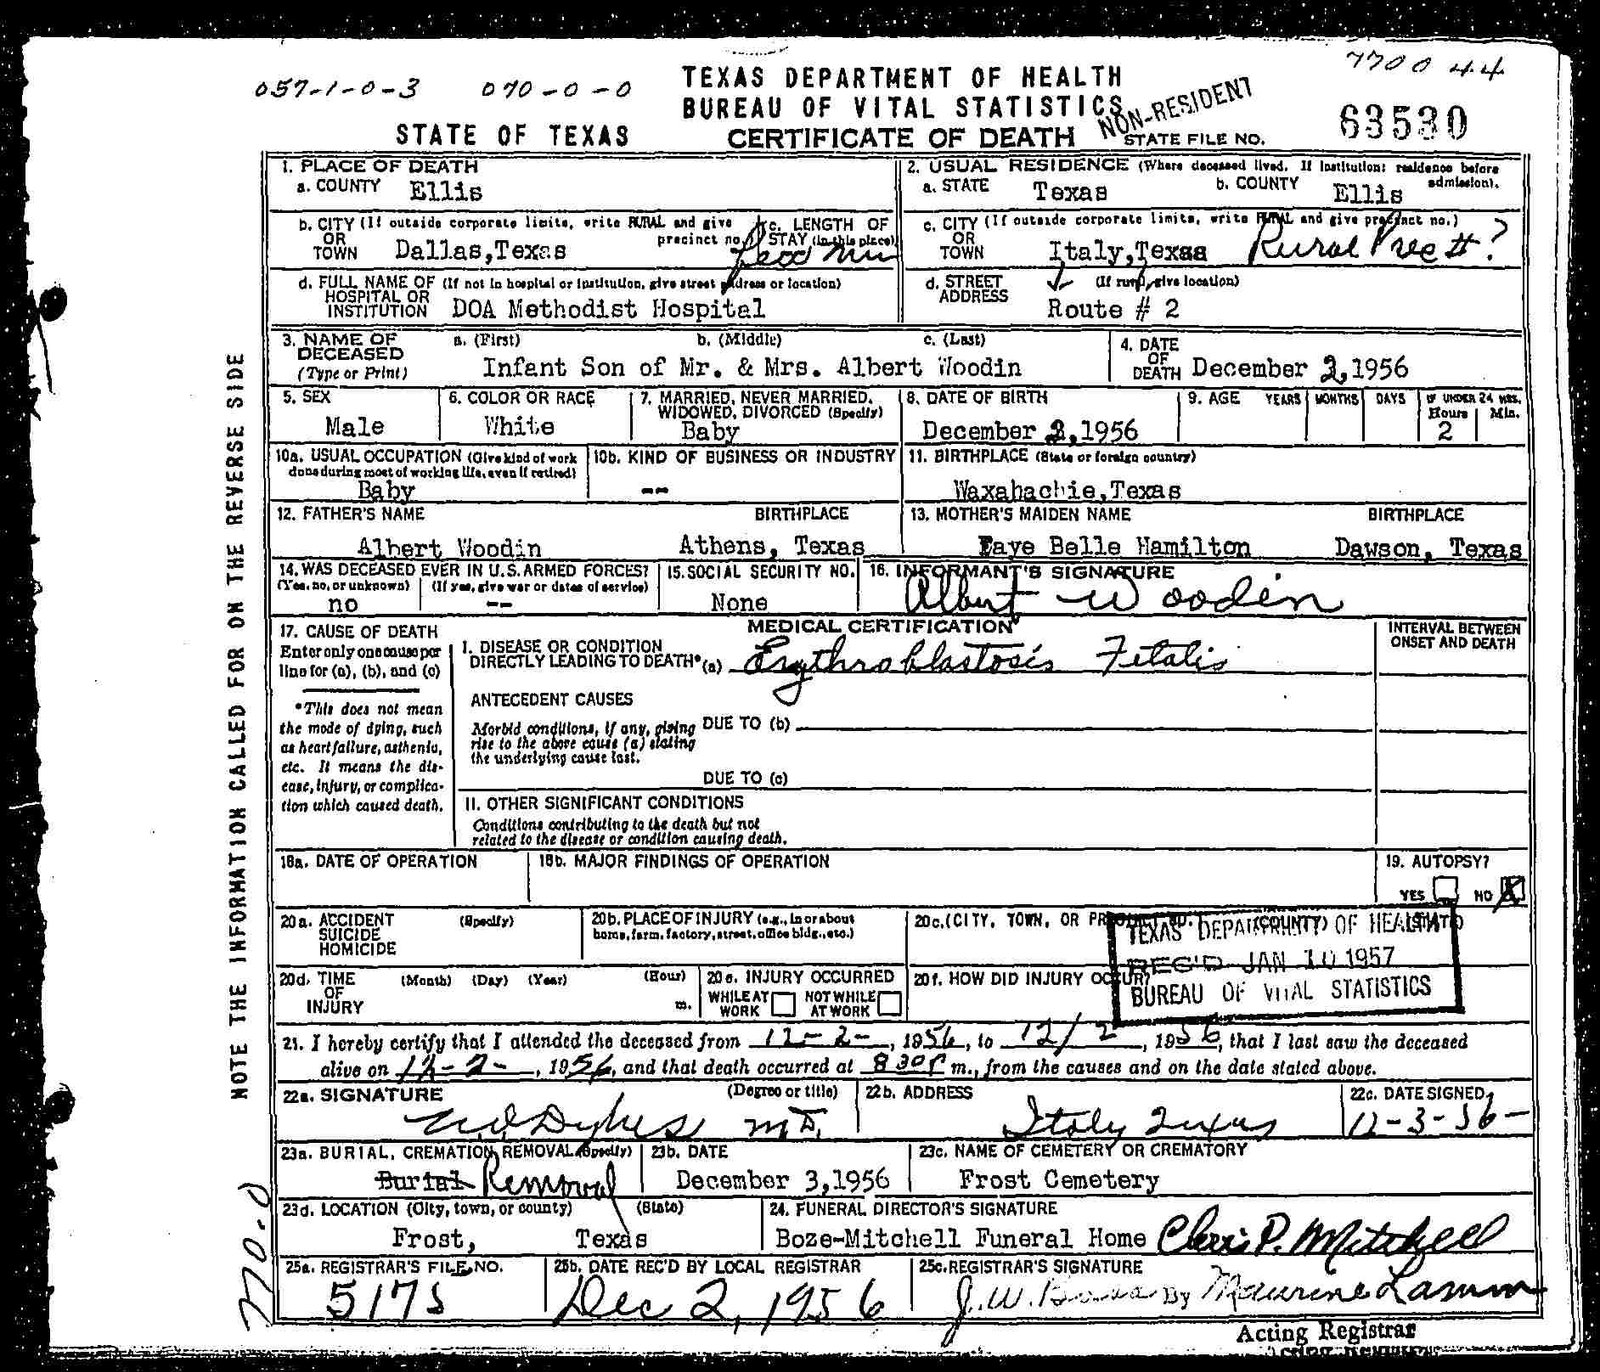 7700 44
057-1-0-3 070-0-0
TEXAS DEPARTMENT OF HEALTH
BUREAU OF VITAL STATISTICS
NON-RESIDENT
STATE OF TEXAS CERTIFICATE OF DEATH STATE FILE NO. 63530
1. PLACE OF DEATH
a. COUNTY Ellis
2. USUAL RESIDENCE (Where deceased lived. If institution: residence before admission).
a. STATE Texas b. COUNTY Ellis
b. CITY (If outside corporate limits, write RURAL and give precinct no.)
OR TOWN Dallas, Texas
c. LENGTH OF STAY (in this place)
c. CITY (If outside corporate limits, write RURAL and give precinct no.)
OR TOWN Italy, Texas Rural Prect?
d. FULL NAME OF (If not in hospital or institution, give street address or location)
HOSPITAL OR INSTITUTION DOA Methodist Hospital
d. STREET ADDRESS (If rural, give location)
Route # 2
3. NAME OF DECEASED (Type or Print) a. (First) b. (Middle) c. (Last)
Infant Son of Mr. & Mrs. Albert Woodin
4. DATE OF DEATH December 2, 1956
5. SEX
Male
6. COLOR OR RACE
White
7. MARRIED, NEVER MARRIED, WIDOWED, DIVORCED (Specify)
Baby
8. DATE OF BIRTH
December 2, 1956
9. AGE YEARS MONTHS DAYS IF UNDER 24 HRS. Hours Min.
2
10a. USUAL OCCUPATION (Give kind of work done during most of working life, even if retired)
Baby
10b. KIND OF BUSINESS OR INDUSTRY
--
11. BIRTHPLACE (State or foreign country)
Waxahachie, Texas
12. FATHER'S NAME BIRTHPLACE
Albert Woodin Athens, Texas
13. MOTHER'S MAIDEN NAME BIRTHPLACE
Faye Belle Hamilton Dawson, Texas
14. WAS DECEASED EVER IN U.S. ARMED FORCES?
(Yes, no, or unknown) (If yes, give war or dates of service)
no --
15. SOCIAL SECURITY NO.
None
16. INFORMANT'S SIGNATURE
Albert Woodin
MEDICAL CERTIFICATION
17. CAUSE OF DEATH
Enter only one cause per line for (a), (b), and (c)
*This does not mean the mode of dying, such as heart failure, asthenia, etc. It means the disease, injury, or complication which caused death.
I. DISEASE OR CONDITION
DIRECTLY LEADING TO DEATH* (a) Erythroblastosis Fetalis
INTERVAL BETWEEN ONSET AND DEATH
ANTECEDENT CAUSES
Morbid conditions, if any, giving rise to the above cause (a) stating the underlying cause last.
DUE TO (b)
DUE TO (c)
II. OTHER SIGNIFICANT CONDITIONS
Conditions contributing to the death but not related to the disease or condition causing death.
18a. DATE OF OPERATION
18b. MAJOR FINDINGS OF OPERATION
19. AUTOPSY?
YES NO X
20a. ACCIDENT SUICIDE HOMICIDE (Specify)
20b. PLACE OF INJURY (e.g., in or about home, farm, factory, street, office bldg., etc.)
20c. (CITY, TOWN, OR PRECINCT NO.) (COUNTY) (STATE)
TEXAS DEPARTMENT OF HEALTH
REC'D JAN 10 1957
BUREAU OF VITAL STATISTICS
20d. TIME OF INJURY (Month) (Day) (Year) (Hour) m.
20e. INJURY OCCURRED
WHILE AT WORK NOT WHILE AT WORK
20f. HOW DID INJURY OCCUR?
21. I hereby certify that I attended the deceased from 12-2-, 1956, to 12/2, 1956, that I last saw the deceased
alive on 12-2-, 1956, and that death occurred at 830P m., from the causes and on the date stated above.
22a. SIGNATURE (Degree or title)
Dykes M.D.
22b. ADDRESS
Italy Texas
22c. DATE SIGNED
12-3-56-
23a. BURIAL, CREMATION, REMOVAL (Specify)
Burial Removal
23b. DATE
December 3, 1956
23c. NAME OF CEMETERY OR CREMATORY
Frost Cemetery
23d. LOCATION (City, town, or county) (State)
Frost, Texas
24. FUNERAL DIRECTOR'S SIGNATURE
Boze-Mitchell Funeral Home Chris P. Mitchell
25a. REGISTRAR'S FILE NO.
25b. DATE REC'D BY LOCAL REGISTRAR
Dec 2, 1956
25c. REGISTRAR'S SIGNATURE
J. W. By Maurine Lamm
Acting Registrar
NOTE THE INFORMATION CALLED FOR ON THE REVERSE SIDE
770.0